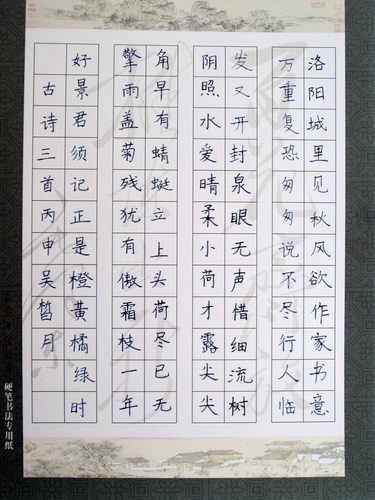 洛阳城里见秋风欲作家书意
万重复恐匆匆说不尽行人临
发又开封泉眼无声惜细流树
阴照水爱晴柔小荷才露尖尖
角早有蜻蜓立上头荷尽已无
擎雨盖菊残犹有傲霜枝一年
好景君须记正是橙黄橘绿时
古诗三首丙申吴皙月
硬笔书法专用纸